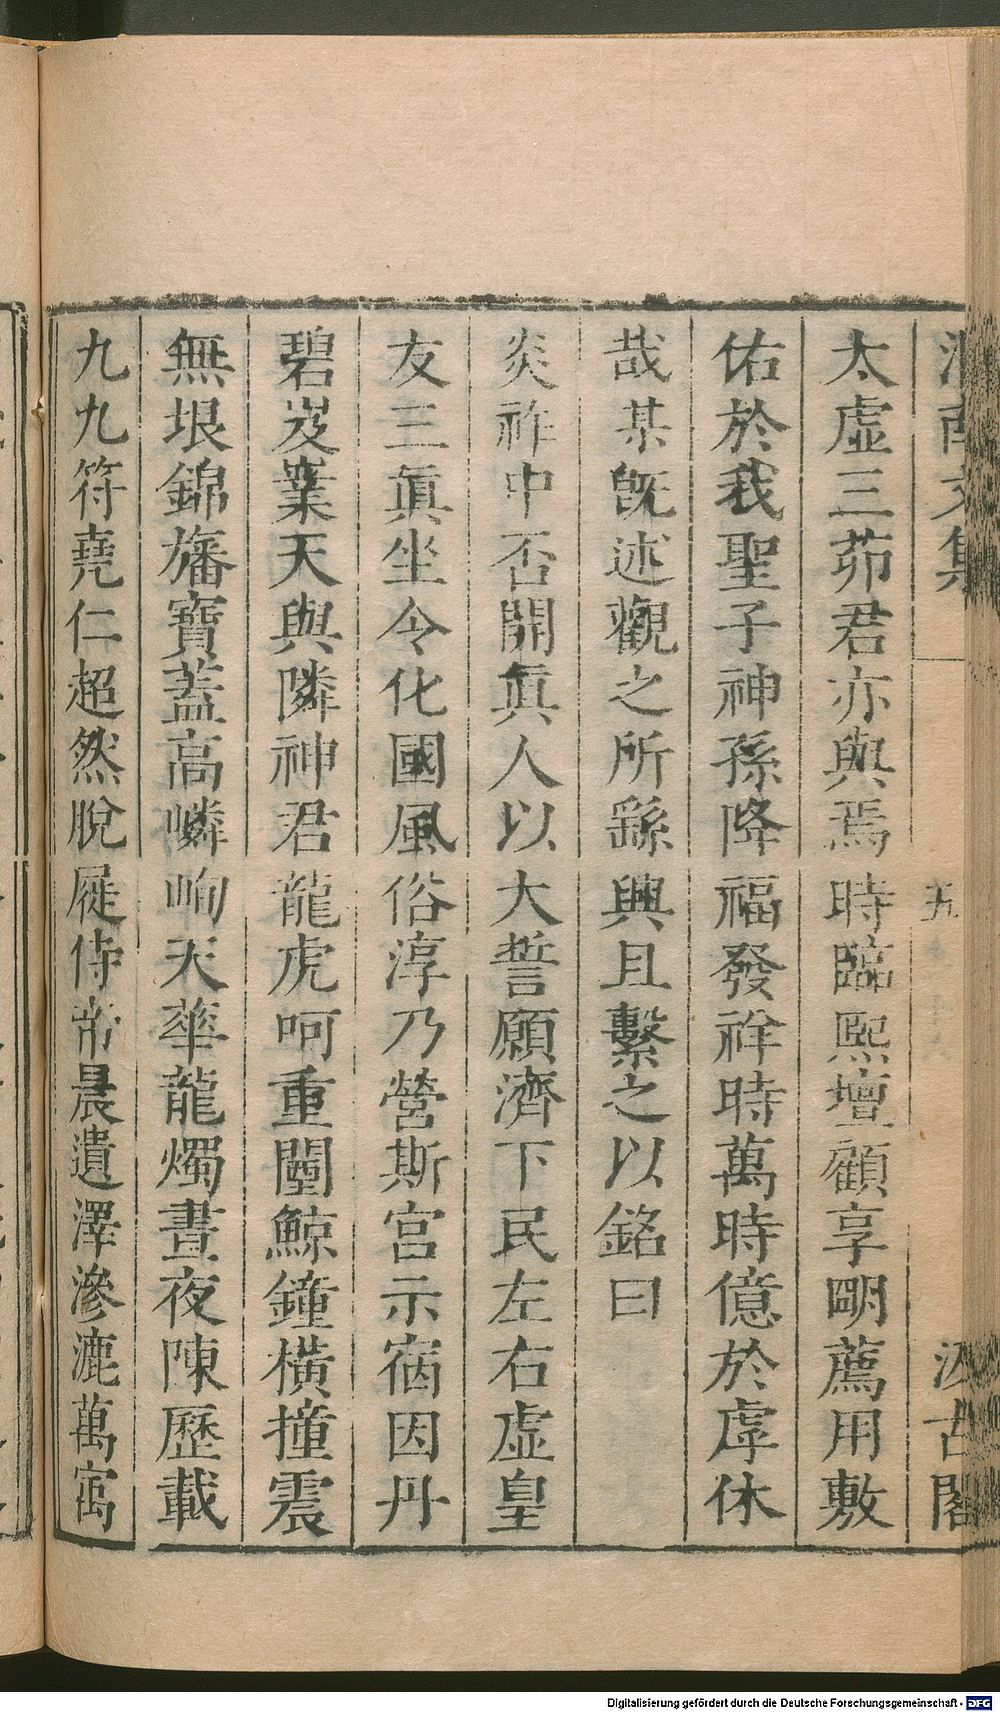 渭南文集 五 汲古閣
太虛三茆君亦與焉時臨熙壇顧享明薦用敷
佑於我聖子神孫降福發祥時萬時億於虖休
哉某旣述觀之所繇興且繫之以銘曰
炎祚中否開眞人以大誓願濟下民左右虛皇
友三眞坐令化國風俗淳乃營斯宮示宿因丹
碧岌業天與隣神君龍虎呵重闉鯨鐘橫撞震
無垠錦旛寶蓋高嶙峋天華龍燭晝夜陳歷載
九九符堯仁超然脫屣侍帝晨遺澤滲漉萬㝢
Digitalisierung gefördert durch die Deutsche Forschungsgemeinschaft - DFG